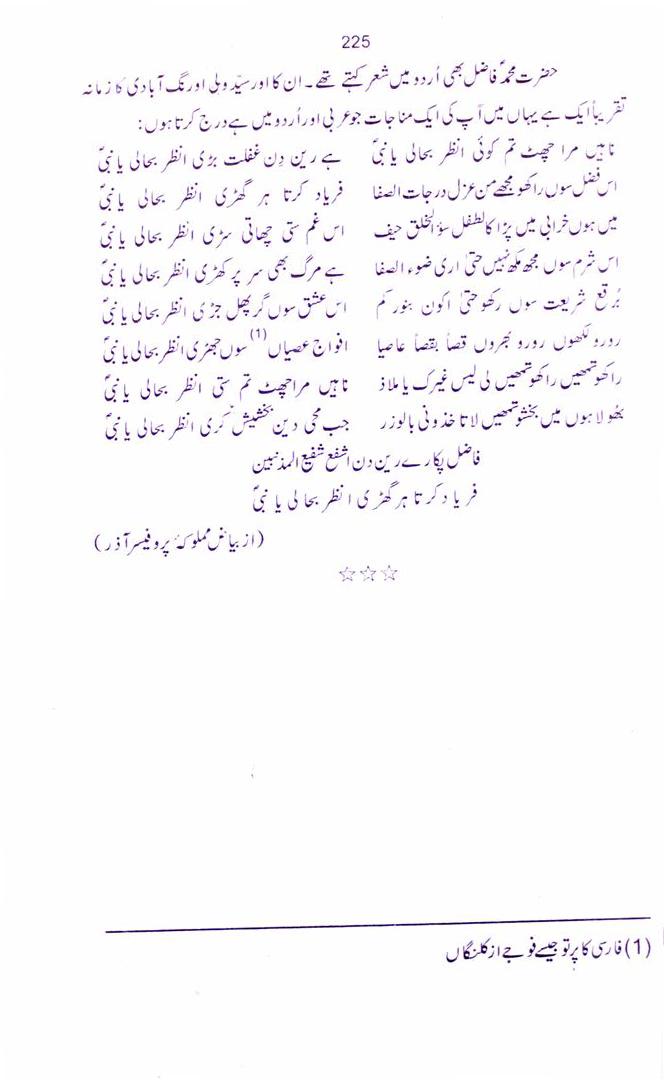 225
حضرت محمدؐ فاضل بھی اُردو میں شعر کہتے تھے۔ ان کا اور سیّد ولی اورنگ آبادی کا زمانہ
تقریباً ایک ہے یہاں میں آپ کی ایک مناجات جو عربی اور اُردو میں ہے درج کرتا ہوں:
ناہیں مرا چھٹ تم کوئی انظر بحالی یا نبیؐ ہے رین دِن غفلت بڑی انظر بحالی یا نبیؐ
اس فضل سوں راکھو مجھے من عزل درجات الصفا فریاد کرتا ہر گھڑی انظر بحالی یا نبیؐ
میں ہوں خرابی میں پڑا کالطفل سؤ الخلق حیف اس غم ستی چھاتی سڑی انظر بحالی یا نبیؐ
اس شرم سوں مجھ مکھ نہیں حتیٰ اری ضوء الصفا ہے مرگ بھی سر پر کھڑی انظر بحالی یا نبیؐ
بُرقع شریعت سوں رکھو حتیٰ اکون بنور کم اس عشق سوں گر پھل جڑی انظر بحالی یا نبیؐ
رورو لکھوں رورو بُجروں قصاً بقصاً عاصیا افواج عصیاں (1) سوں جھڑی انظر بحالی یا نبیؐ
راکھو تمھیں راکھو تمھیں لی لیس غیرک یا ملاذ ناہیں مرا چھٹ تم ستی انظر بحالی یا نبیؐ
بھولا ہوں میں بخشو تمھیں لا تاخذونی بالوزر جب محی دین بخشیش کری انظر بحالی یا نبیؐ
فاضل پکارے رین دن اشفع شفیع المذنبین
فریاد کرتا ہر گھڑی انظر بحالی یا نبیؐ
(از بیاض مملوکۂ پروفیسر آذر)
☆☆☆
(1) فارسی کا پرتو جیسے فوجے از کلنگاں